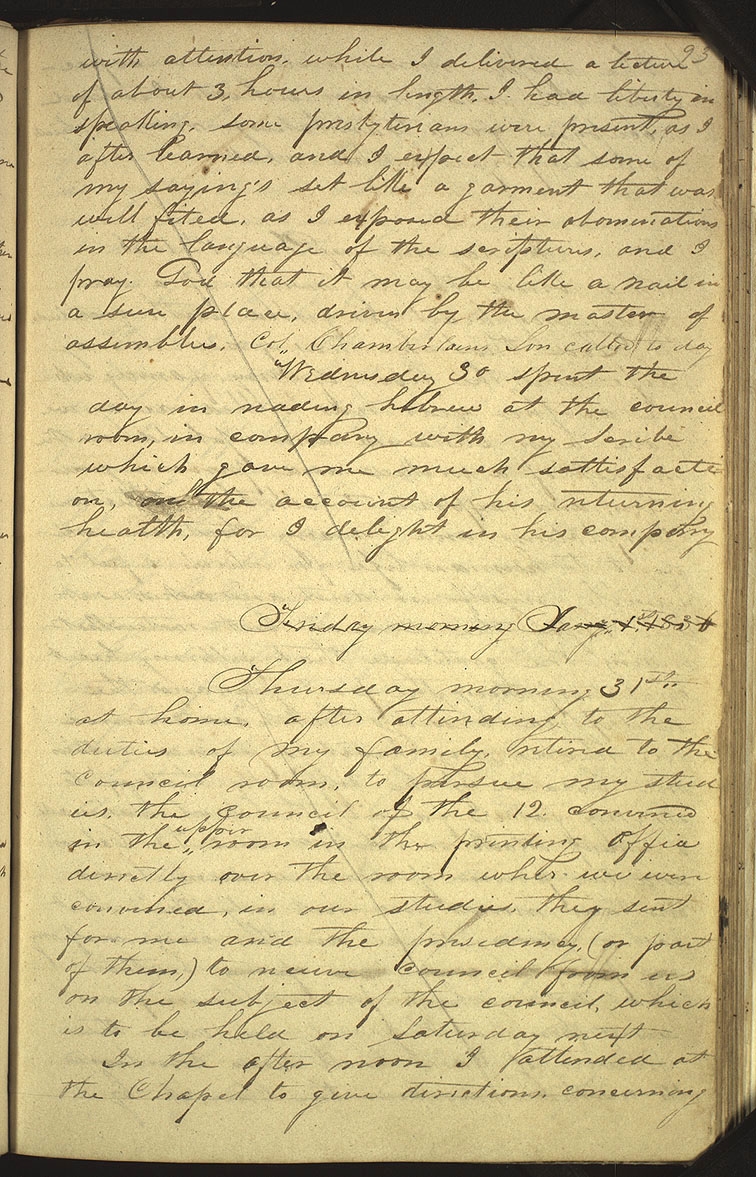 93
with attention, while I delivered a lecture
of about 3, hours in length, I had liberty in
speaking, some presbyterians were present, as I
after learned, and I expect that some of
my saying's set like a garment that was
well fited, as I exposed their abominations
in the language of the scriptures, and I
pray God that it may be like a nail in
a sure place, driven by the master of
assembles, Col. Chamberlains Son called to day
Wednesday 30 spent the
day in reading hebrew at the council
room, in company with my scribe
which gave me much sattisfacti
on, on the account of his returning
health, for I delight in his company
Friday morning Jany 1st 1836
Thursday morning 31st
at home, after attending to the
duties of my family, retired to the
council room, to pursue my stud
ies, the council of the 12. convened
in the upper room in the printing office
directly over the room where we were
convened, in our studies, they sent
for me and the presidency, (or part
of them,) to receive council from us
on the subject of the council, which
is to be held on Saturday next
In the after noon I attended at
the Chapel to give directions, concerning